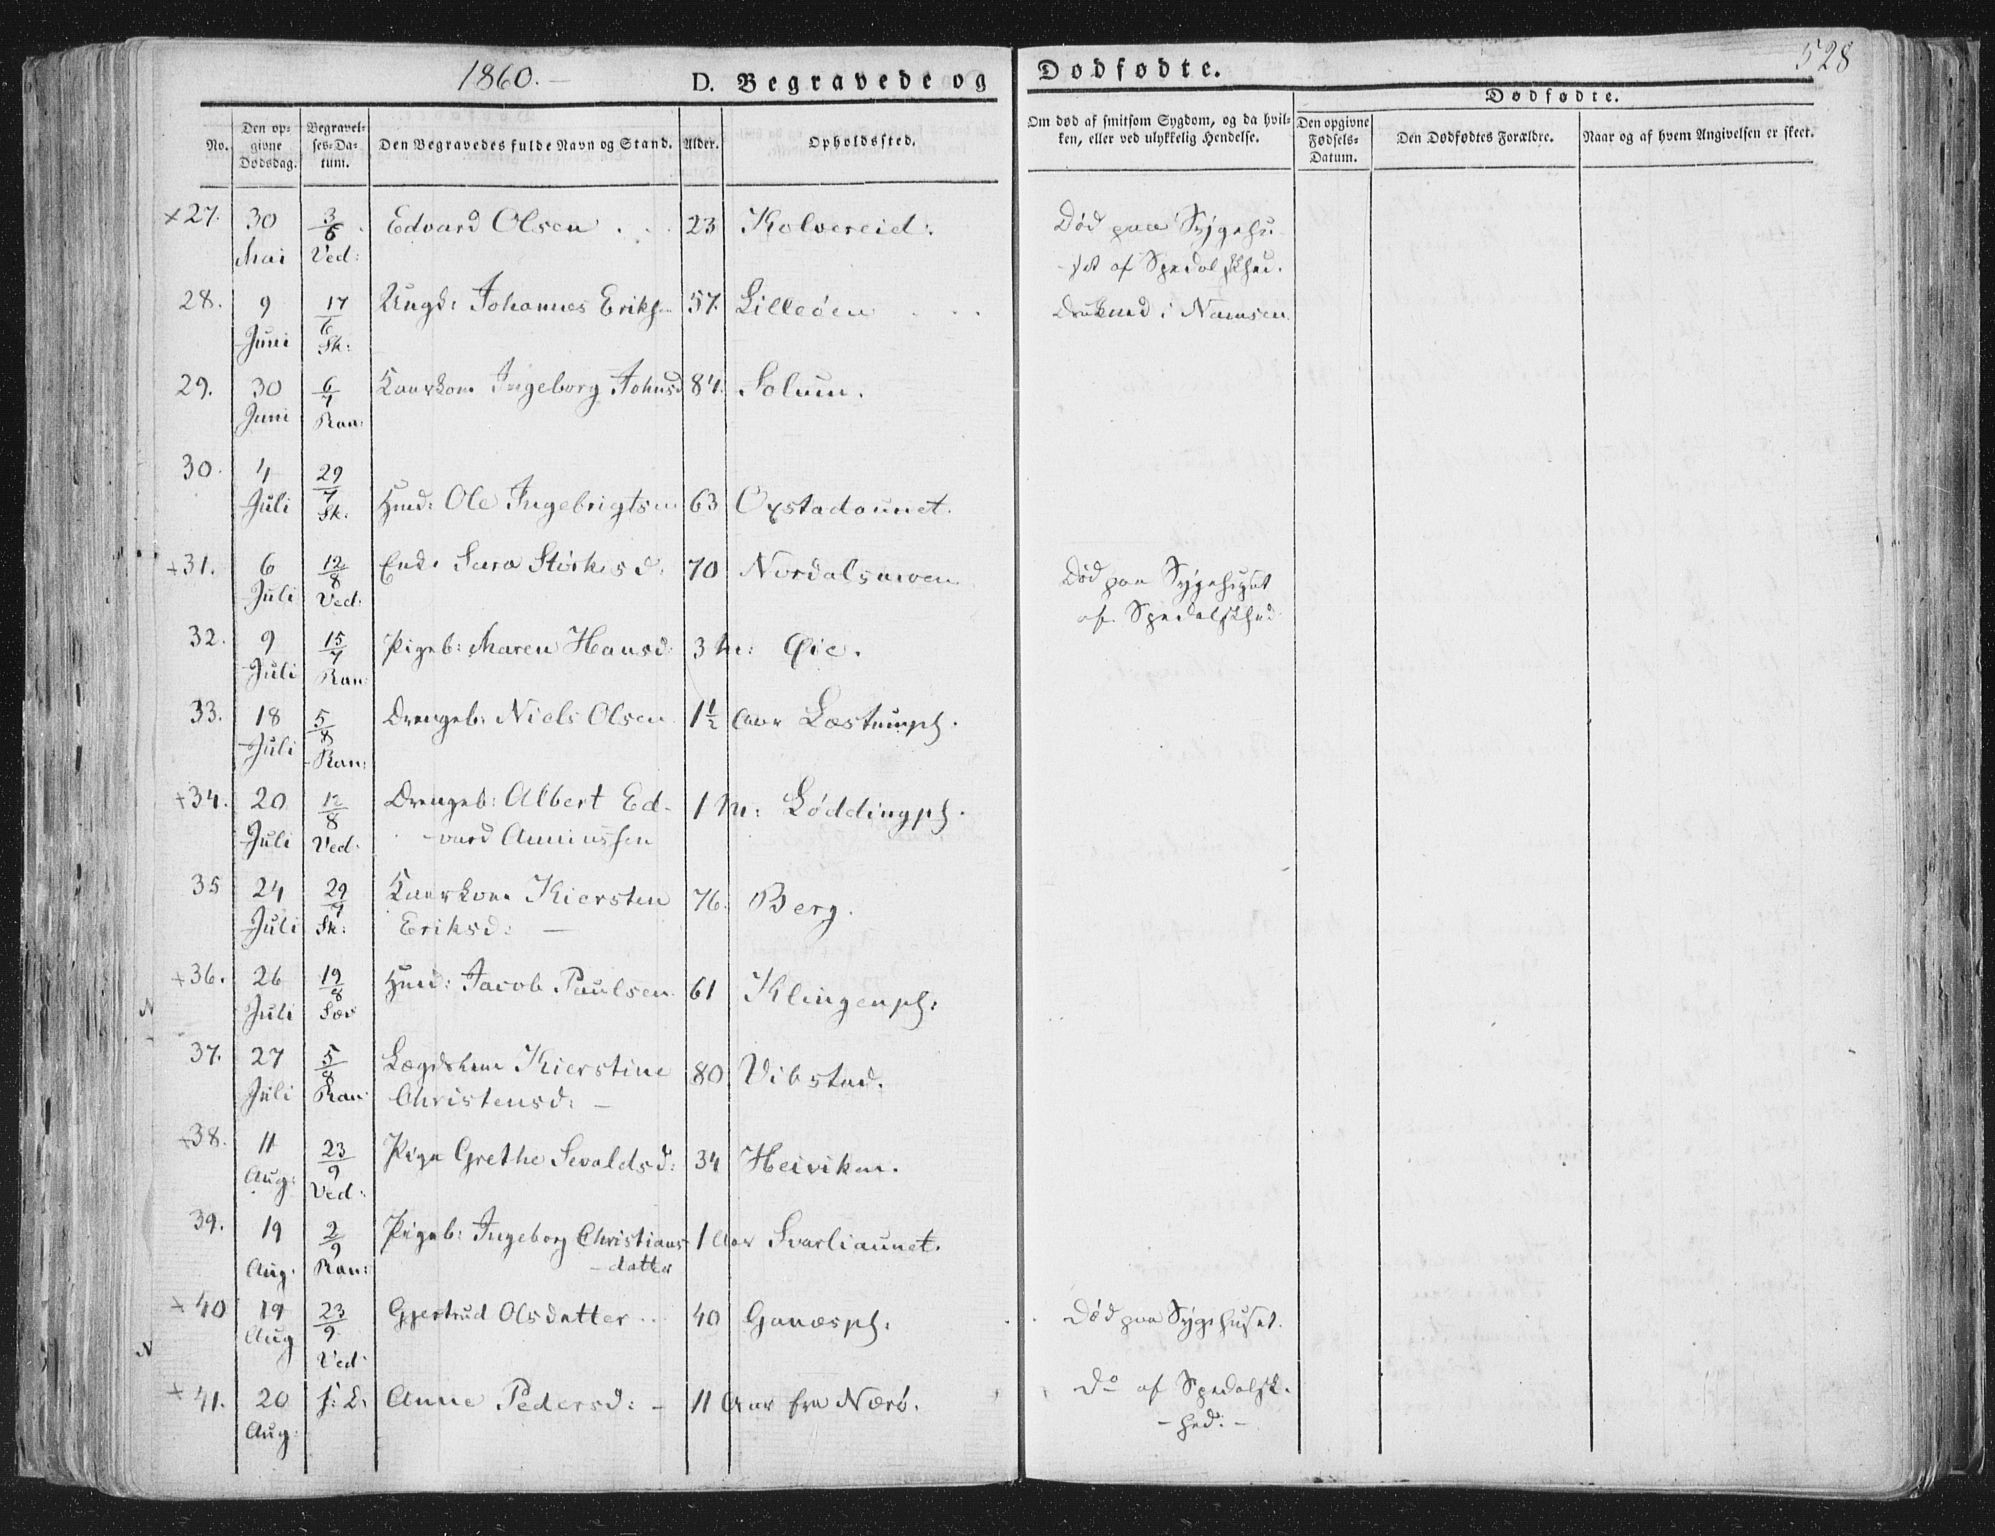 1860.—
D. Begravede og
Dødfødte.
528
No.
Den opgivne Dødsdag.
Begravelses-Datum.
Den Begravedes fulde Navn og Stand.
Alder.
Opholdssted.
Om død af smitsom Sygdom, og da hvilken, eller ved ulykkelig Hendelse.
Dødfødte.
Den opgivne Fødsels-Datum.
Den Dødfødtes Forældre.
Naar og af hvem Angivelsen er skeet.
+27. 30 3/6 Edvard Olsen 23 Kolvereid. Død paa Sygehu-
Mai Ved: set af Spedalskhed.
28. 9 17/6 Ungd: Johannes Eriks 57. Lilleøen Drukned i Namsen
Juni Sk:
29. 30 6/7 Kaarkone Ingeborg Johnsd 84. Solum.
Juni Ran:
30. 4 29/7
Juli Sk. Huusmd: Ole Ingebrigtsen 63 Oxstadaunet.
+31. 6 12/8 Enke Sara Størkesd: 70 Nordalsmoen Død paa Sygehuset
Juli Ved: af Spedalskhed
32. 9 15/7 Pigeb: Maren Hansd: 3 M: Øie.
Juli Ran:
33. 18 5/8 Drengeb: Niels Olsen 1½ Aar Læstumpl.
Juli Ran:
+34. 20 12/8 Drengeb: Albert Ed- 1 M: Løddingpl.
Juli Ved: -vard
35 24 29/7 Kaarkone Kiersten 76. Berg.
Juli Sk: Eriksd: —
+36. 26 19/8 Jacob Paulsen 61 Klingenpl:
N Juli Sæv
37. 27 5/8 Lægdslem Kierstine 80 Vibstad.
Juli Ran: Christensd: —
+38. 11 23/9 Pige Grethe Sevaldsd: 34 Heiviken.
Aug: Ved:
39. 19 2/9 Pigeb: Ingeborg Christians- 1 Aar Svarliaunet.
Aug. Ran: -datter
+40 19 23/9 Gjertrud Olsdatter 40 Ganæspl: Død paa Sygehuset.
N Aug Ved:
+41. 20 Anne Pedersd: — 11 Aar fra Nærø. Do af Spedalsk-
Aug: -hed.-